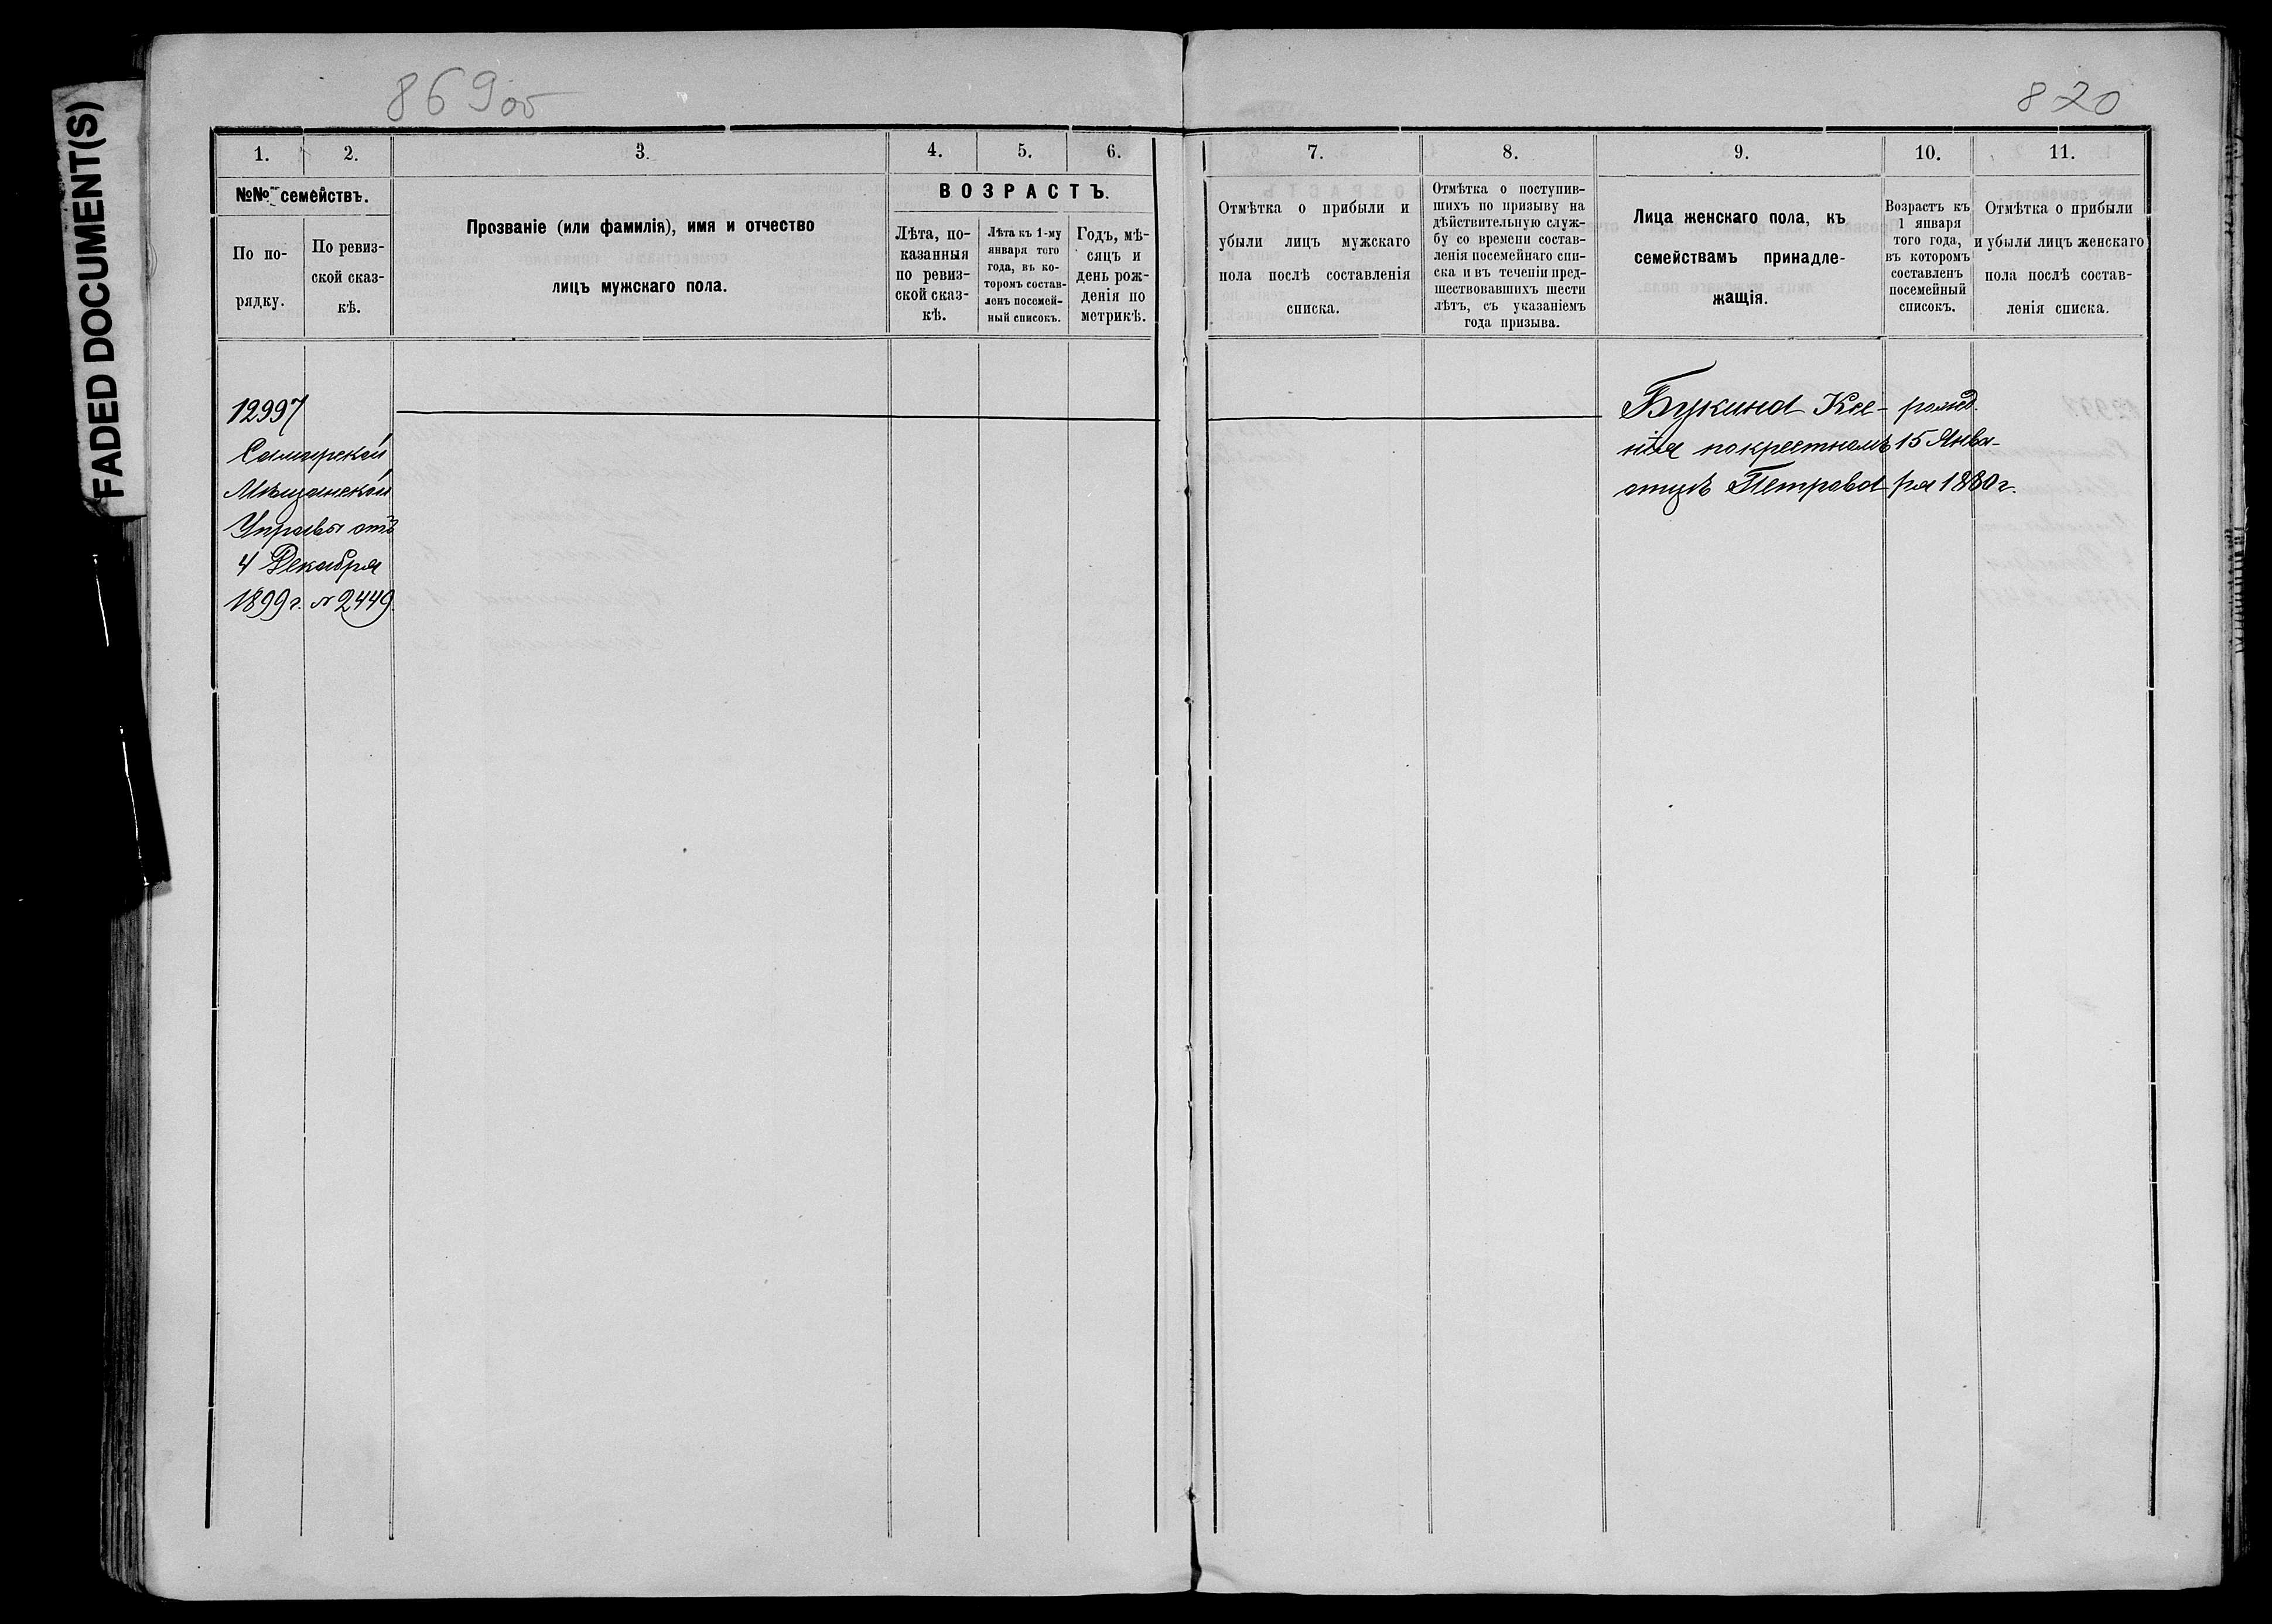 FADED DOCUMENT(S)
869об
820
1.
2.
3.
4.
5.
6.
№№ семействъ.
По по-
рядку.
По ревиз-
ской сказ-
кѣ.
Прозваніе (или фамилія), имя и отчество
лицъ мужскаго пола.
ВОЗРАСТЪ.
Лѣта, по-
казанныя
по ревиз-
ской сказ-
кѣ.
Лѣта къ 1-му
января того
года, въ ко-
торомъ состав-
ленъ посемей-
ный списокъ.
Годъ, мѣ-
сяцъ и
день рож-
денія по
метрикѣ.
12997
Самарской
Мѣщанской
Управы отъ
4 Декабря
1899 г. № 2449.
7.
8.
9.
10.
11.
Отмѣтка о прибыли и
убыли лицъ мужскаго
пола послѣ составленія
списка.
Отмѣтка о поступив-
шихъ по призыву на
дѣйствительную служ-
бу со времени состав-
ленія посемейнаго спи-
ска и въ теченіи пред-
шествовавшихъ шести
лѣтъ, съ указаніемъ
года призыва.
Лица женскаго пола, къ
семействамъ принадле-
жащія.
Возрастъ къ
1 января
того года,
въ которомъ
составленъ
посемейный
списокъ.
Отмѣтка о прибыли
и убыли лицъ женскаго
пола послѣ состав-
ленія списка.
Букина Ксе-
нія по крестномъ
отцѣ Петрова
рожд.
15 Янва-
ря 1880 г.